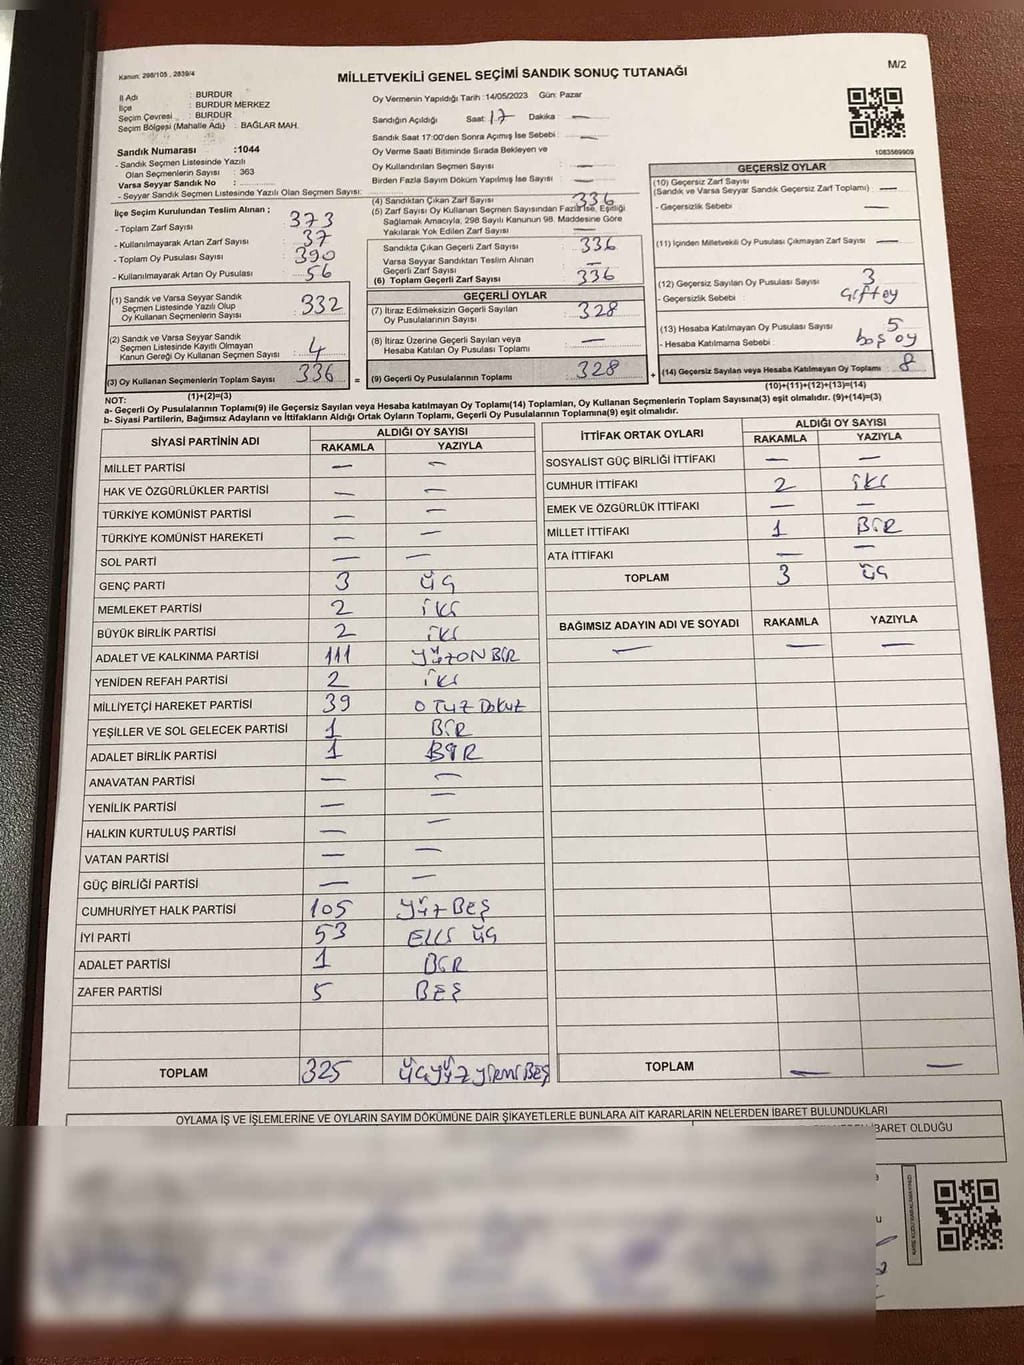 Kanun: 298/105 , 2839/4
MİLLETVEKİLİ GENEL SEÇİMİ SANDIK SONUÇ TUTANAĞI
M/2
İl Adı : BURDUR
İlçe : BURDUR MERKEZ
Seçim Çevresi : BURDUR
Seçim Bölgesi (Mahalle Adı) : BAĞLAR MAH.
Sandık Numarası :1044
- Sandık Seçmen Listesinde Yazılı
Olan Seçmenlerin Sayısı : 363
Varsa Seyyar Sandık No :
- Seyyar Sandık Seçmen Listesinde Yazılı Olan Seçmen Sayısı:
İlçe Seçim Kurulundan Teslim Alınan ;
- Toplam Zarf Sayısı : 373
- Kullanılmayarak Artan Zarf Sayısı : 37
- Toplam Oy Pusulası Sayısı : 390
- Kullanılmayarak Artan Oy Pusulası : 56
(1) Sandık ve Varsa Seyyar Sandık
Seçmen Listesinde Yazılı Olup
Oy Kullanan Seçmenlerin Sayısı : 332
(2) Sandık ve Varsa Seyyar Sandık
Seçmen Listesinde Kayıtlı Olmayan
Kanun Gereği Oy Kullanan Seçmen Sayısı : 4
(3) Oy Kullanan Seçmenlerin Toplam Sayısı : 336
(1)+(2)=(3)
Oy Vermenin Yapıldığı Tarih :14/05/2023 Gün: Pazar
Sandığın Açıldığı Saat: 17 Dakika : —
Sandık Saat 17:00'den Sonra Açımış İse Sebebi : —
Oy Verme Saati Bitiminde Sırada Bekleyen ve
Oy Kullandırılan Seçmen Sayısı : —
Birden Fazla Sayım Döküm Yapılmış İse Sayısı : —
(4) Sandıktan Çıkan Zarf Sayısı : 336
(5) Zarf Sayısı Oy Kullanan Seçmen Sayısından Fazla İse, Eşitliği
Sağlamak Amacıyla, 298 Sayılı Kanunun 98. Maddesine Göre
Yakılarak Yok Edilen Zarf Sayısı : —
Sandıkta Çıkan Geçerli Zarf Sayısı : 336
Varsa Seyyar Sandıktan Teslim Alınan
Geçerli Zarf Sayısı : —
(6) Toplam Geçerli Zarf Sayısı : 336
GEÇERLİ OYLAR
(7) İtiraz Edilmeksizin Geçerli Sayılan
Oy Pusulalarının Sayısı : 328
(8) İtiraz Üzerine Geçerli Sayılan veya
Hesaba Katılan Oy Pusulası Toplamı : —
= (9) Geçerli Oy Pusulalarının Toplamı : 328 +
1083569909
GEÇERSİZ OYLAR
(10) Geçersiz Zarf Sayısı
(Sandık ve Varsa Seyyar Sandık Geçersiz Zarf Toplamı) : —
- Geçersizlik Sebebi : —
(11) İçinden Milletvekili Oy Pusulası Çıkmayan Zarf Sayısı : —
(12) Geçersiz Sayılan Oy Pusulası Sayısı : 3
- Geçersizlik Sebebi : çift oy
(13) Hesaba Katılmayan Oy Pusulası Sayısı : 5
- Hesaba Katılmama Sebebi : boş oy
(14) Geçersiz Sayılan veya Hesaba Katılmayan Oy Toplamı : 8
(10)+(11)+(12)+(13)=(14)
NOT:
a- Geçerli Oy Pusulalarının Toplamı(9) ile Geçersiz Sayılan veya Hesaba katılmayan Oy Toplamı(14) Toplamları, Oy Kullanan Seçmenlerin Toplam Sayısına(3) eşit olmalıdır. (9)+(14)=(3)
b- Siyasi Partilerin, Bağımsız Adayların ve İttifakların Aldığı Ortak Oyların Toplamı, Geçerli Oy Pusulalarının Toplamına(9) eşit olmalıdır.
SİYASİ PARTİNİN ADI ALDIĞI OY SAYISI
RAKAMLA YAZIYLA
MİLLET PARTİSİ — —
HAK VE ÖZGÜRLÜKLER PARTİSİ — —
TÜRKİYE KOMÜNİST PARTİSİ — —
TÜRKİYE KOMÜNİST HAREKETİ — —
SOL PARTİ — —
GENÇ PARTİ 3 üç
MEMLEKET PARTİSİ 2 iki
BÜYÜK BİRLİK PARTİSİ 2 iki
ADALET VE KALKINMA PARTİSİ 111 yüzON BİR
YENİDEN REFAH PARTİSİ 2 iki
MİLLİYETÇİ HAREKET PARTİSİ 39 OTuz Dokuz
YEŞİLLER VE SOL GELECEK PARTİSİ 1 BİR
ADALET BİRLİK PARTİSİ 1 BİR
ANAVATAN PARTİSİ — —
YENİLİK PARTİSİ — —
HALKIN KURTULUŞ PARTİSİ — —
VATAN PARTİSİ — —
GÜÇ BİRLİĞİ PARTİSİ — —
CUMHURİYET HALK PARTİSİ 105 yüz BEŞ
İYİ PARTİ 53 ELLİ üç
ADALET PARTİSİ 1 BİR
ZAFER PARTİSİ 5 BEŞ
TOPLAM 325 üçyüz yirmi BEŞ
İTTİFAK ORTAK OYLARI ALDIĞI OY SAYISI
RAKAMLA YAZIYLA
SOSYALİST GÜÇ BİRLİĞİ İTTİFAKI — —
CUMHUR İTTİFAKI 2 iki
EMEK VE ÖZGÜRLÜK İTTİFAKI — —
MİLLET İTTİFAKI 1 BİR
ATA İTTİFAKI — —
TOPLAM 3 üç
BAĞIMSIZ ADAYIN ADI VE SOYADI RAKAMLA YAZIYLA
— — —
TOPLAM — —
OYLAMA İŞ VE İŞLEMLERİNE VE OYLARIN SAYIM DÖKÜMÜNE DAİR ŞİKAYETLERLE BUNLARA AİT KARARLARIN NELERDEN İBARET BULUNDUKLARI
İBARET OLDUĞU